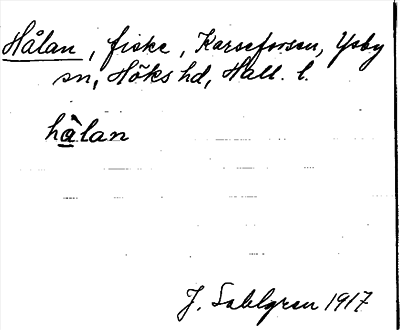 Hålan, fiske, Karseforsen, Ysby
sn, Höks hd, Hall. l.
hå̀lan
J. Sahlgren 1917